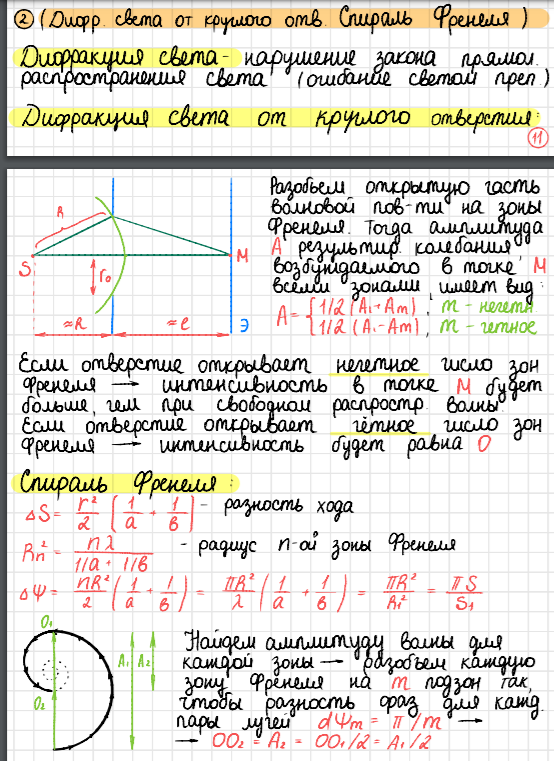 ② (Дифр. света от круглого отв. Спираль Френеля)
Дифракция света - нарушение закона прямол.
распространения света (огибание светом преп.)
Дифракция света от круглого отверстия:
11
Разобьем открытую часть
волновой пов-ти на зоны
Френеля. Тогда амплитуда
A результир. колебания,
возбуждаемого в точке M
всеми зонами, имеет вид:
A = { 1/2 (A₁ + Aₘ), m - нечетн.
1/2 (A₁ - Aₘ), m - четное
R
S
r₀
M
≈R
≈l
Э
Если отверстие открывает нечетное число зон
Френеля → интенсивность в точке M будет
больше, чем при свободном распростр. волны
Если отверстие открывает чётное число зон
Френеля → интенсивность будет равна 0
Спираль Френеля:
ΔS = r²/2 (1/a + 1/в) - разность хода
Rₙ² = nλ / (1/a + 1/в) - радиус n-ой зоны Френеля
ΔΨ = nR²/2 (1/a + 1/в) = πR²/λ (1/a + 1/в) = πR²/R₁² = πS/S₁
O₁
O₂
A₁
A₂
Найдем амплитуду волны для
каждой зоны → разобьем каждую
зону Френеля на m подзон так,
чтобы разность фраз для кажд.
пары лучей dΨₘ = π/m →
→ OO₂ = A₂ = OO₁/2 = A₁/2